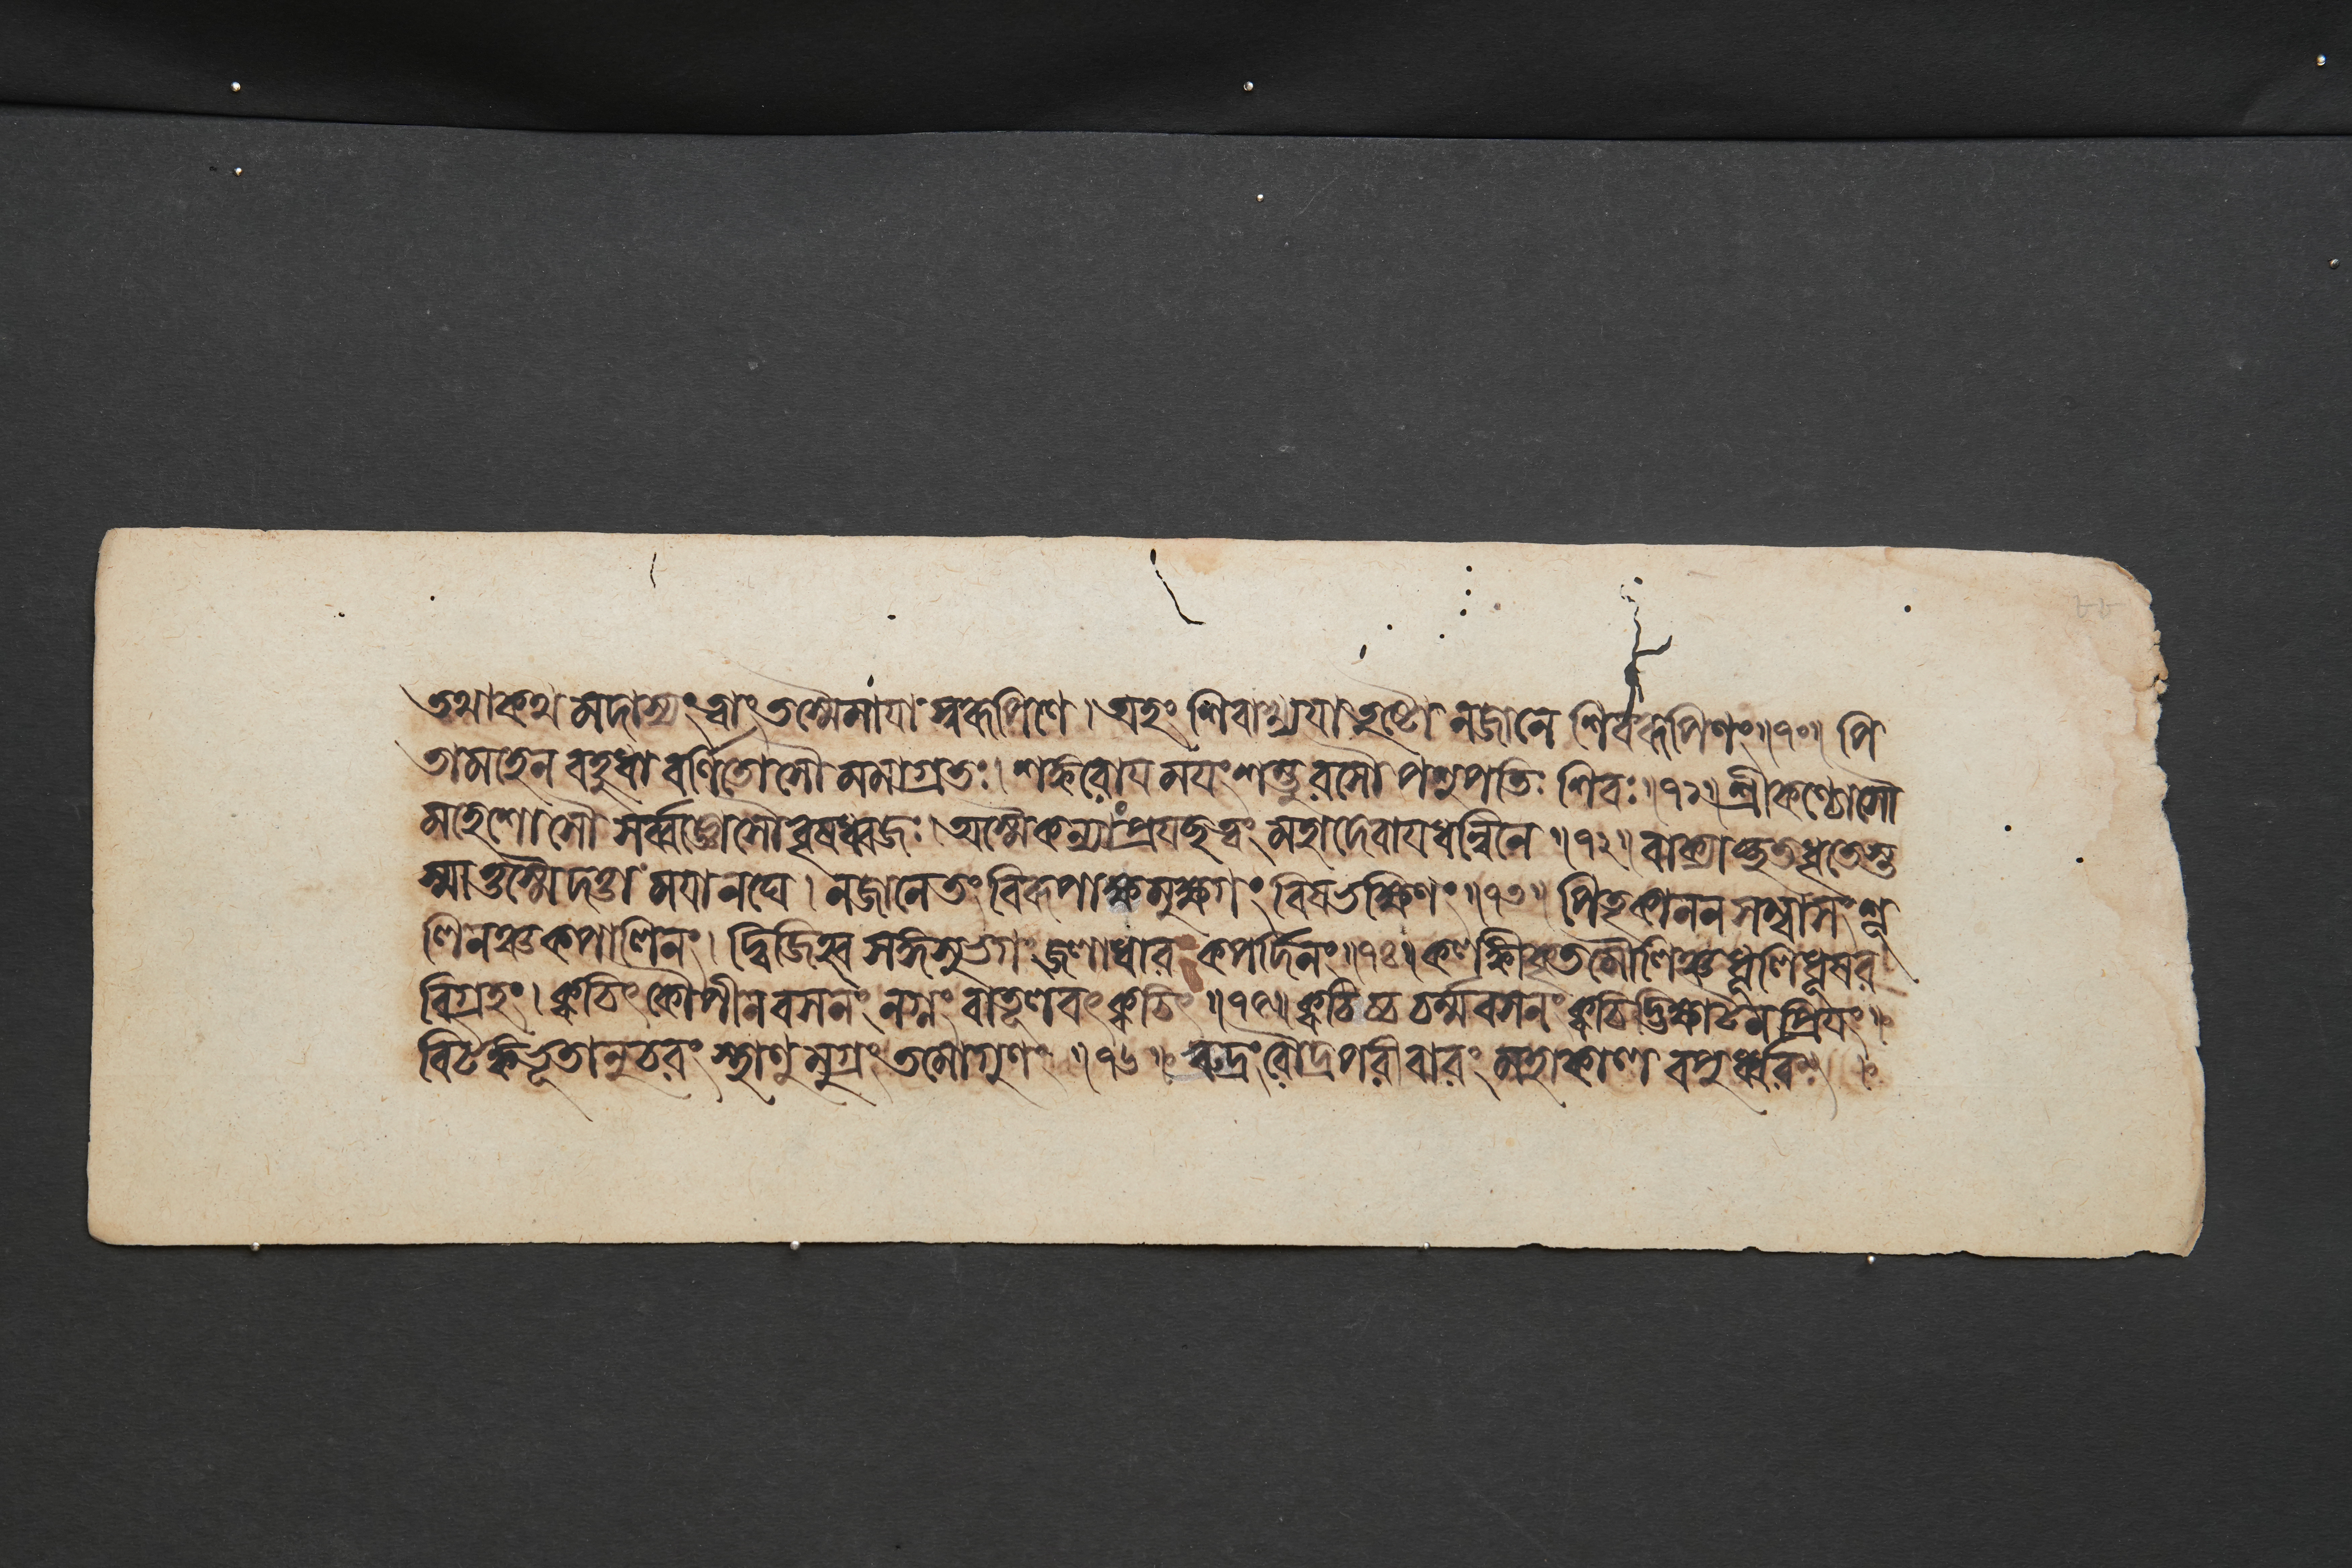 তথাকথমদাস্যং ত্বাং তস্মৈমায়াস্বরূপিণে । অহং শিবাখ্যয়া তুষ্টো নজানে শিবরূপিণং ॥ ১০ ॥ পি
তামহেন বহুধা বর্ণিতোসৌ মমাগ্রতঃ । শঙ্করোয়ময়ং শম্ভুরসৌ পশুপতিঃ শিবঃ ॥ ১১ ॥ শ্রীকণ্ঠোসৌ
মহেশোসৌ সর্ব্বজ্ঞোসৌ বৃষধ্বজঃ । অস্মৈকন্যাং প্রয়চ্ছত্বং মহাদেবায়ধন্বিনে ॥ ১২ ॥ বাক্যাচ্ছতধৃতেস্ত
স্মাত্তস্মৈদত্তা ময়ানঘে । নজানেতং বিরূপাক্ষমুক্ষগং বিষভক্ষিণং ॥ ১৩ ॥ পিতৃকাননসম্বাসং শূ
লিনঞ্চকপালিনং । দ্বিজিহ্ব সঙ্গসুভগং জলাধারং কপর্দিনং ॥ ১৪ ॥ কলঙ্কিকৃতমৌলিঞ্চ ধূলিধূসর
বিগ্রহং । ক্বচিৎ কৌপীনবসনং নগ্নং বাতূলবৎ ক্বচিৎ ॥ ১৫ ॥ ক্বচিচ্চ চর্ম্মবসনং ক্বচিদ্ভিক্ষাটনপ্রিয়ং ॥
বিটঙ্কভূতানুচরং স্থাণুমুগ্রং তমোগুণং ॥ ১৬ ॥ রুদ্রং রৌদ্রপরীবারং মহাকাল বপুর্ধরং